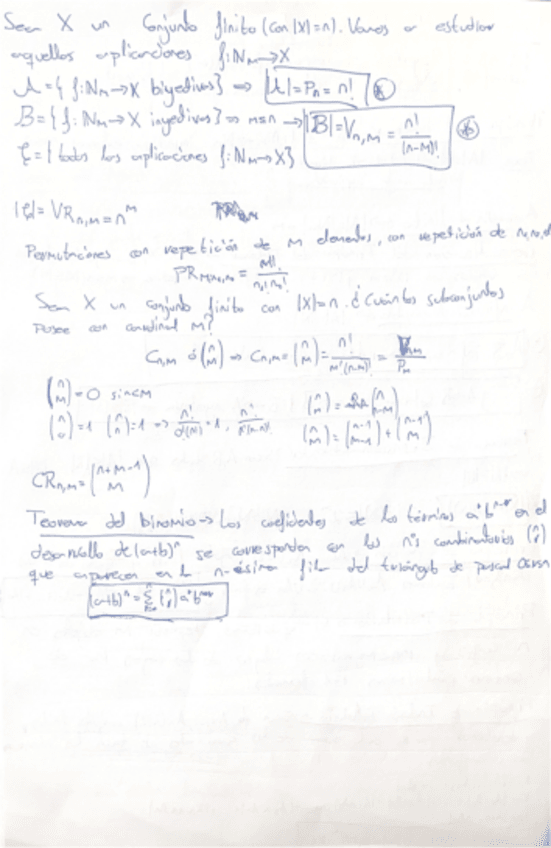 Sea X un Conjunto finito (con |X|=n). Vamos a estudiar
aquellas aplicaciones f:Nm→X
A={f:Nm→X biyectivas} ⇒ |A|=Pn=n! *
B={f:Nm→X inyectivas} ⇒ m≤n → |B|=Vn,m = n!/(n-m)! *
C={todas las aplicaciones f:Nm→X}
|C|=VRn,m=n^m
Permutaciones con repetición de m elementos, con repetición de
Sea X un conjunto finito con |X|=n. ¿Cuántos subconjuntos
Posee con cardinal m?
Cn,m ó (n m) ⇒ Cn,m=(n m)=n!/m!(n-m)! = Vn,m/Pm
(n m)=0 si n<m (n m)=(n n-m)
(n 0)=1 (n n)=1 ⇒ n!/0!(n)!=1, n!/n!(n-n)! (n m)=(n-1 m-1)+(n-1 m)
CRn,m=(n+m-1 m)
Teorema del binomio→ Los coeficientes de los términos a^r b^n-r en el
desarrollo de (a+b)^n se corresponden con los nºs combinatorios (n r)
que aparecen en la n-ésima fila del triángulo de pascal
(a+b)^n = Σ (n r) a^r b^n-r